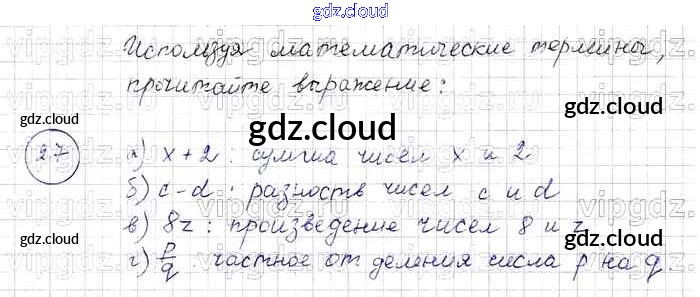 gdz.cloud
Используя математические термины,
прочитайте выражение:
2.7
а) x + 2 : сумма чисел x и 2
б) c - d : разность чисел c и d
в) 8z : произведение чисел 8 и z
г) p/q : частное от деления числа p на q.
gdz.cloud
gdz.cloud
gdz.cloud
gdz.cloud
gdz.cloud
gdz.cloud
gdz.cloud